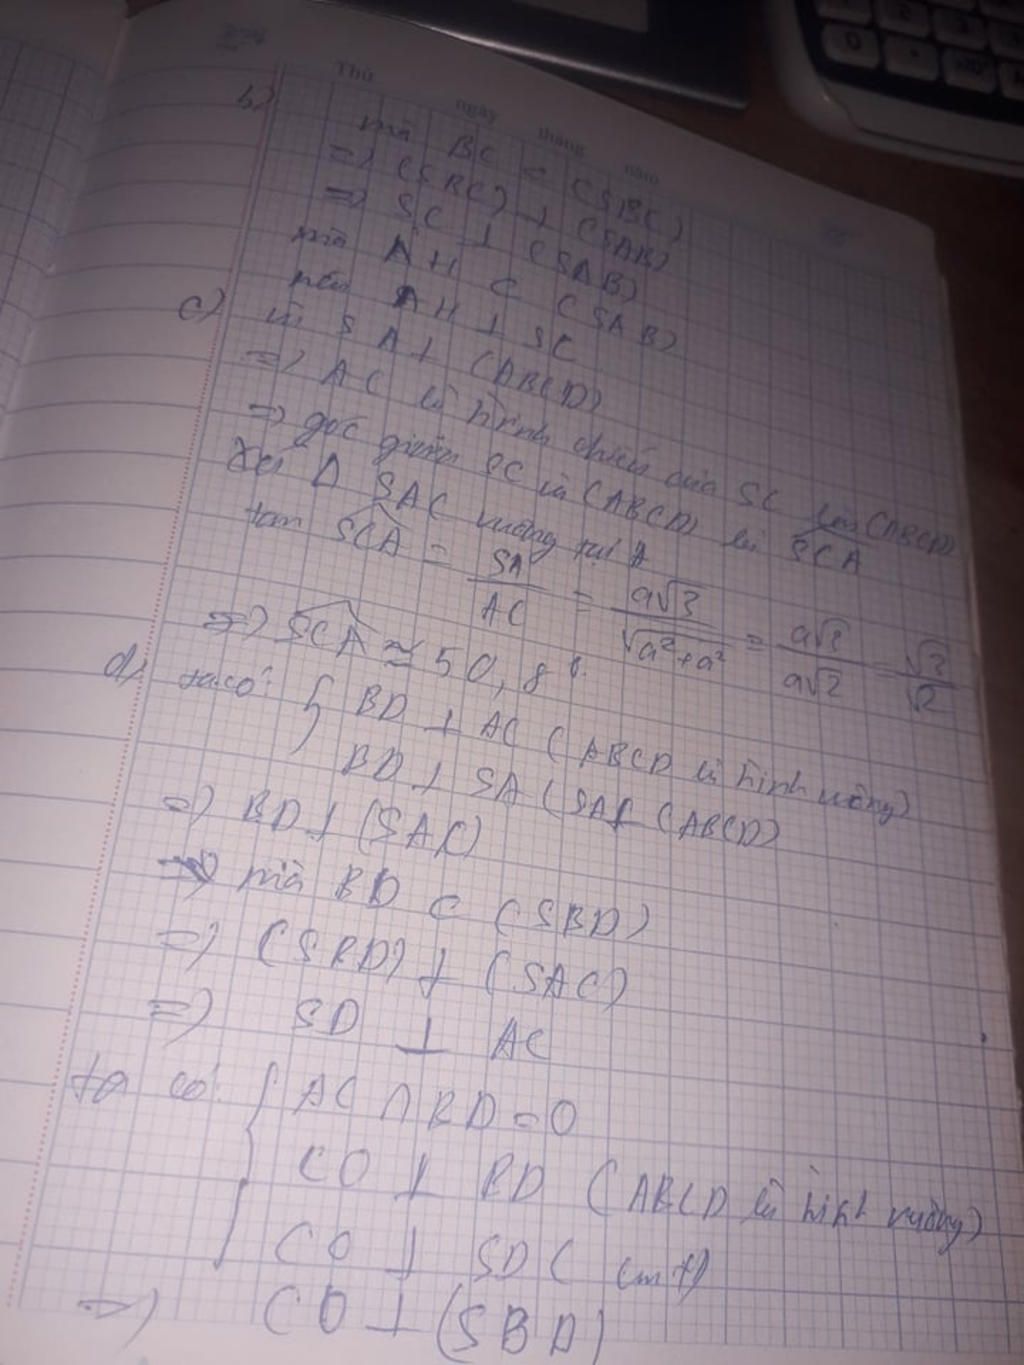 Thứ
ngày tháng năm
b) mà BC ⊂ (SBC)
=> (SBC) ⊥ (SAB)
=> SC ⊥ (SAB)
mà AH ⊂ (SAB)
nên AH ⊥ SC
c) vì SA ⊥ (ABCD)
=> AC là hình chiếu của SC lên (ABCD)
=> góc giữa SC và (ABCD) là SCA
Xét Δ SAC vuông tại A
tan SCA = SA/AC = a√3/√a²+a² = a√3/a√2 = √3/√2
=> SCA ≈ 50,8°.
d) ta có: { BD ⊥ AC (ABCD là hình vuông)
BD ⊥ SA (SA ⊥ (ABCD)
=> BD ⊥ (SAC)
=> mà BD ⊂ (SBD)
=> (SBD) ⊥ (SAC)
=> SD ⊥ AC
ta có: { AC ∩ BD = O
CO ⊥ BD (ABCD là hình vuông)
CO ⊥ SD ( cmt)
=> CO ⊥ (SBD)